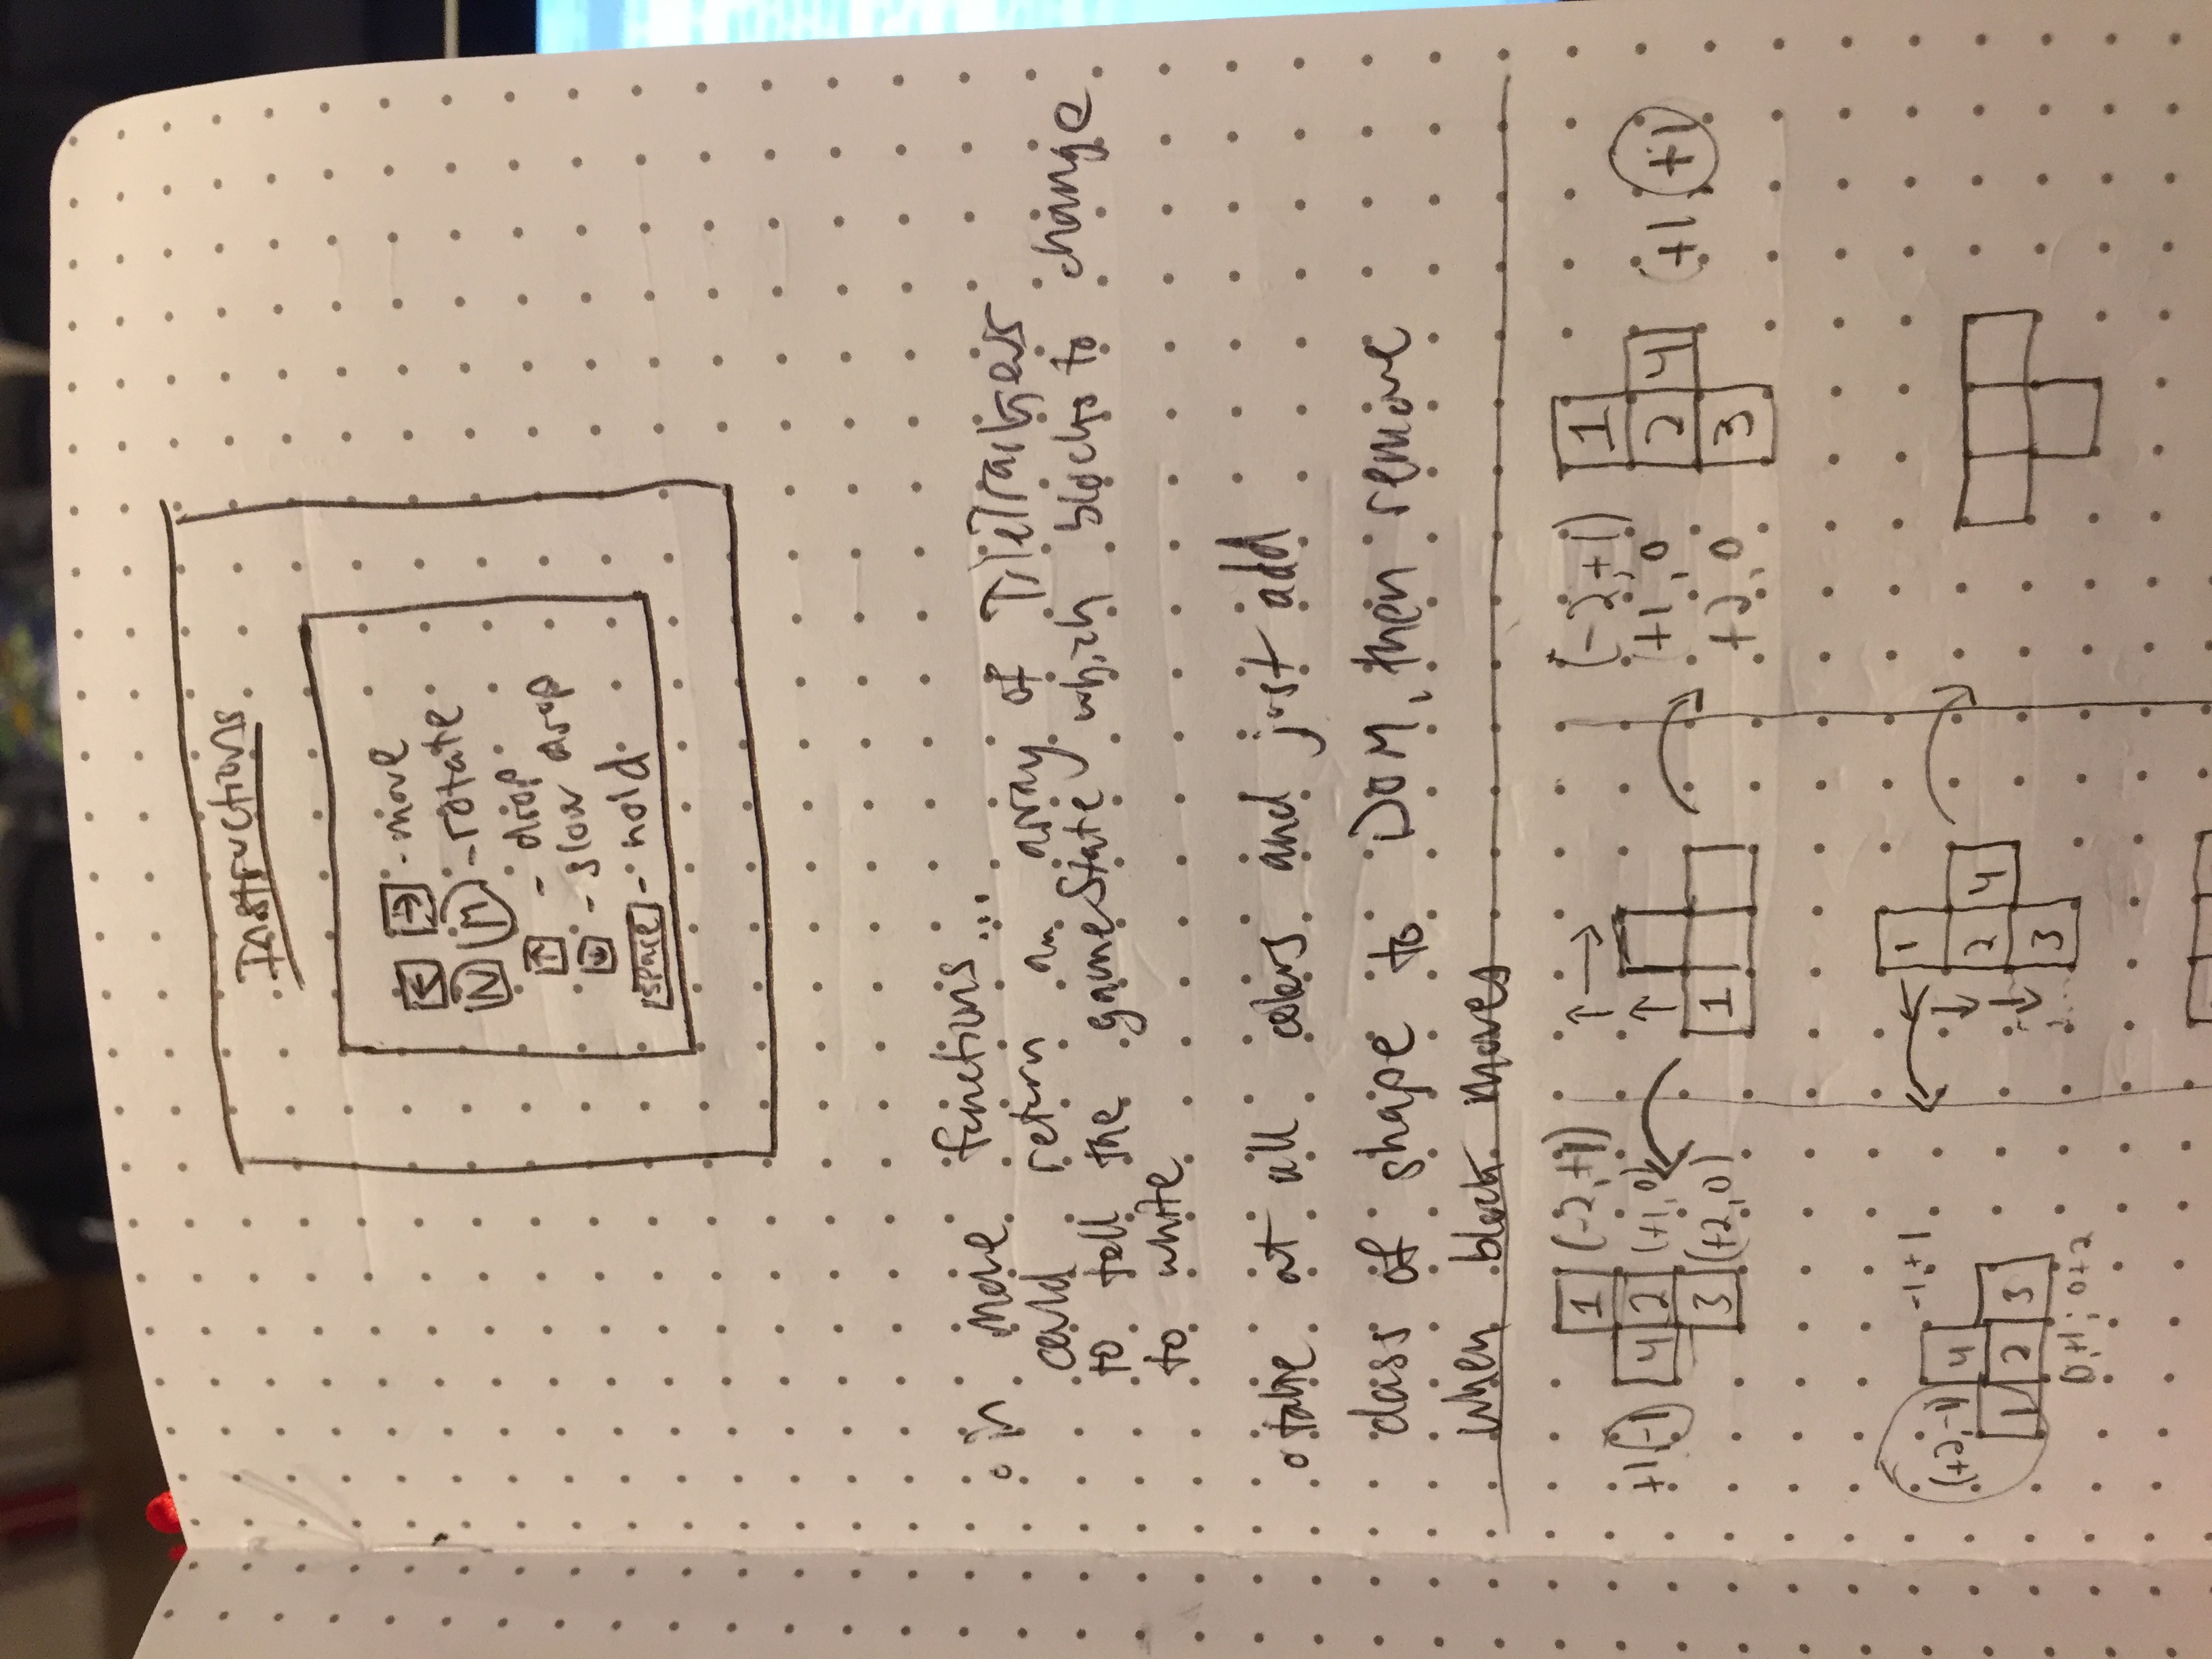 Instructions
← → - move
N M - rotate
↑ - drop
↓ - slow drop
space - hold
in move functions...
could return an array of TileTrackers
to tell the gameState which blocks to change
to white
take at all colors and just add
class of shape to DOM, then remove
when block moves
1 (-2,+1)
+1,-1 4 2 (+1,0)
3 (+2,0)
↑ →
↑
1
(-2,+1) 1
+1,0 2 4 +1,+1
+2,0 3
-1,+1
(+2,-1) 4
1 2 3
0,+1; 0+2
1
↓ 2 4
↓ 3